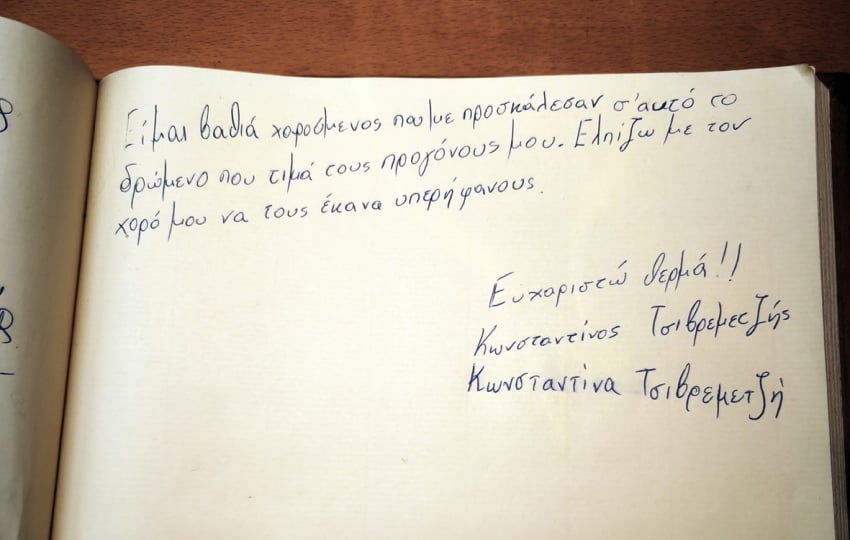 Είμαι βαθιά χαρούμενος που με προσκάλεσαν σ'αυτό το
δρώμενο που τιμά τους προγόνους μου. Ελπίζω με τον
χορό μου να τους έκανα υπερήφανους.
Ευχαριστώ θερμά!!
Κωνσταντίνος Τσιβρεμετζής
Κωνσταντίνα Τσιβρεμετζή